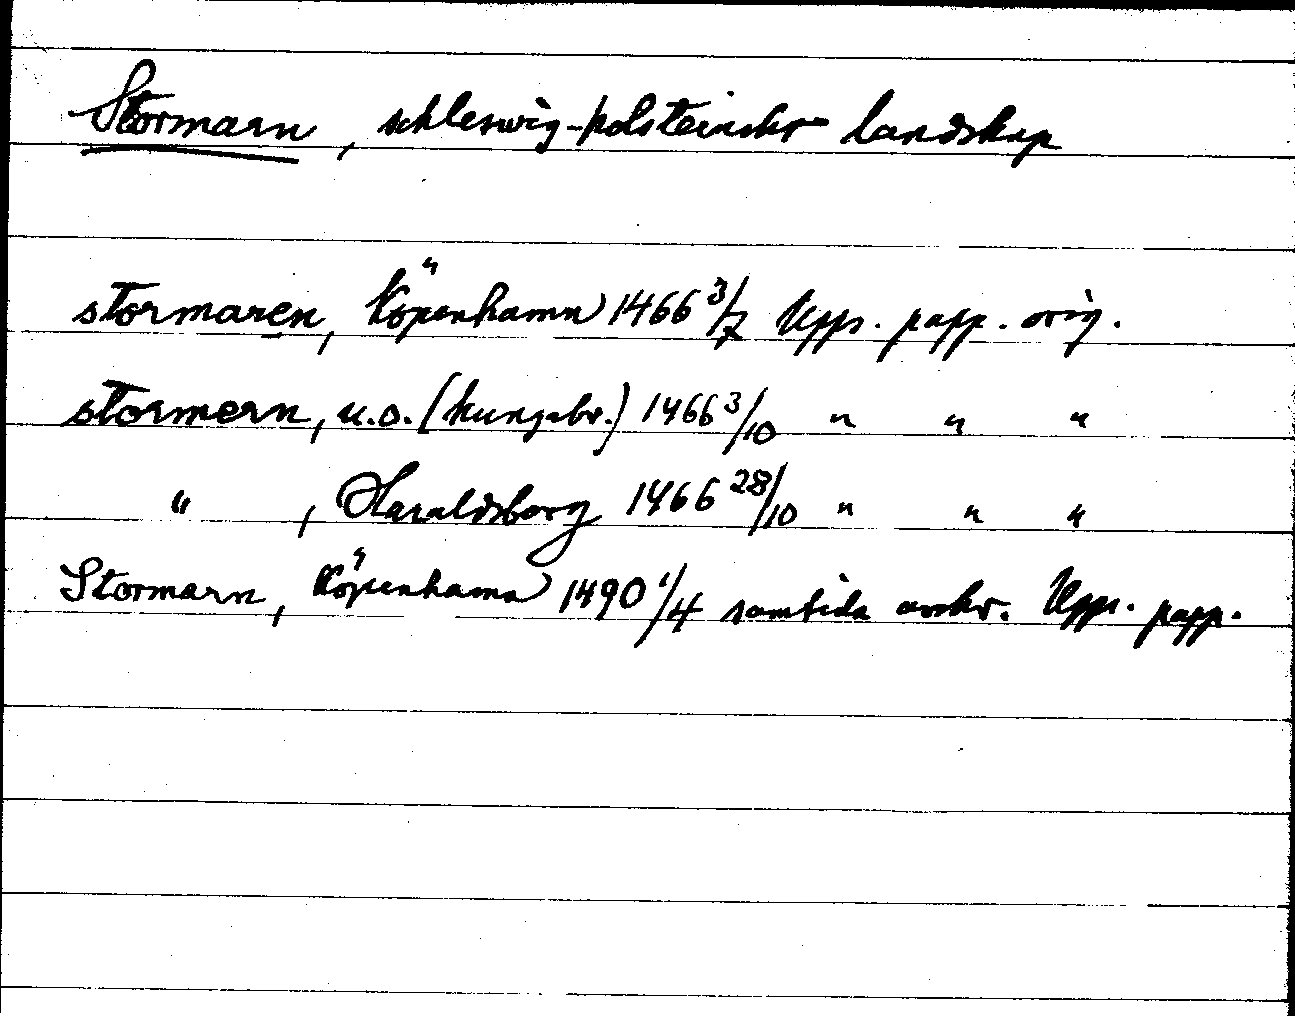 Stormarn, schleswig-holsteinskt landskap
stormaren, Köpenhamn 1466 3/7 Upps. papp. orig.
stormern, u.o. (kungabr.) 1466 3/10 " " "
" , Haraldsborg 1466 28/10 " " "
Stormarn, Köpenhamn 1490 1/4 samtida avskr. Upps. papp.